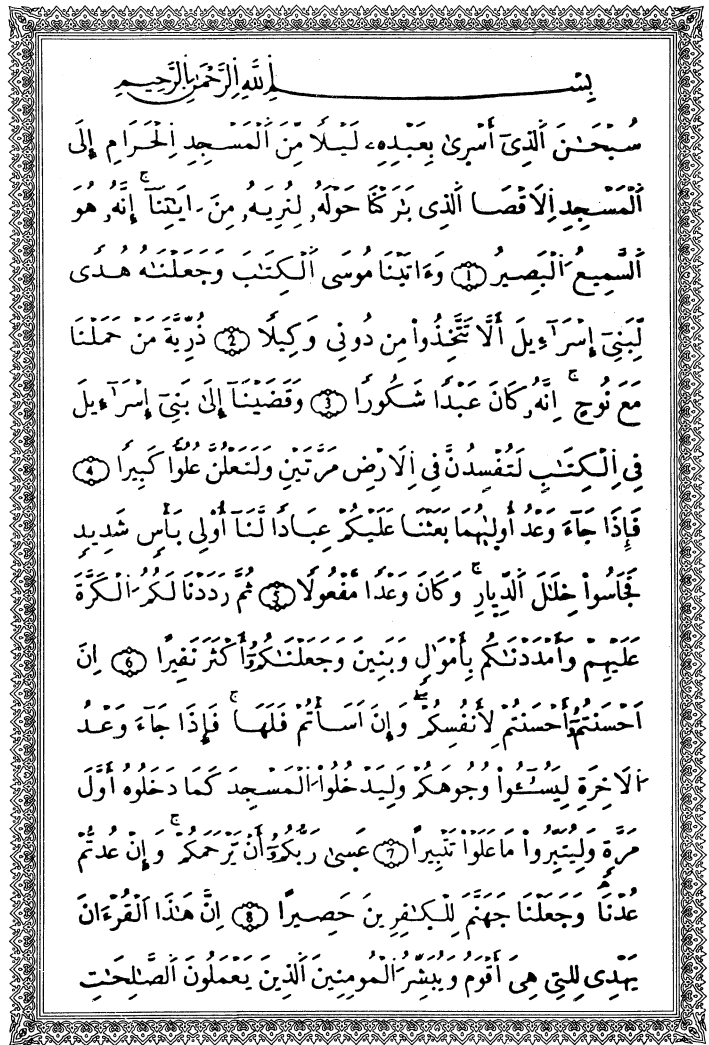 بِسْمِ اِللَّهِ اِلرَّحْمَٰنِ اِلرَّحِيمِ
سُبْحَٰنَ اَلذِےٓ أَسْرٜىٰ بِعَبْدِهِۦ لَيْلٗا مِّنَ اَلْمَسْجِدِ اِلْحَرَامِ إِلَى
اَلْمَسْجِدِ اِلَاقْصَا اَلذِے بَٰرَكْنَا حَوْلَهُۥ لِنُرِيَهُۥ مِنَ اٰيَٰتِنَآۖ إِنَّهُۥ هُوَ
اَلسَّمِيعُ اُلْبَصِيرُ ١ وَءَاتَيْنَا مُوسَى اَلْكِتَٰبَ وَجَعَلْنَٰهُ هُدٗى
لِّبَنِےٓ إِسْرَآءِيلَ أَلَّا تَتَّخِذُواْ مِن دُونِے وَكِيلٗا ٢ ذُرِّيَّةَ مَنْ حَمَلْنَا
مَعَ نُوحٍۖ اِنَّهُۥ كَانَ عَبْدٗا شَكُورٗا ٣ وَقَضَيْنَآ إِلَىٰ بَنِےٓ إِسْرَآءِيلَ
فِے اِلْكِتَٰبِ لَتُفْسِدُنَّ فِے اِلَارْضِ مَرَّتَيْنِ وَلَتَعْلُنَّ عُلُوّٗا كَبِيرٗا ٤
فَإِذَا جَآءَ وَعْدُ أُولٜىٰهُمَا بَعَثْنَا عَلَيْكُمْ عِبَادٗا لَّنَآ أُوْلِے بَأْسٖ شَدِيدٖ
فَجَاسُواْ خِلَٰلَ اَلدِّيٜارِۖ وَكَانَ وَعْدٗا مَّفْعُولٗا ٥ ثُمَّ رَدَدْنَا لَكُمُ اُلْكَرَّةَ
عَلَيْهِمْ وَأَمْدَدْنَٰكُم بِأَمْوَٰلٖ وَبَنِينَ وَجَعَلْنَٰكُمُۥٓ أَكْثَرَ نَفِيرًا ٦ اِنَ
اَحْسَنتُمُۥٓ أَحْسَنتُمْ لِأَنفُسِكُمْۖ وَإِنَ اَسَأْتُمْ فَلَهَاۖ فَإِذَا جَآءَ وَعْدُ
اُلَاخِرَةِ لِيَسُـُٔواْ وُجُوهَكُمْ وَلِيَدْخُلُواْ اُلْمَسْجِدَ كَمَا دَخَلُوهُ أَوَّلَ
مَرَّةٖ وَلِيُتَبِّرُواْ مَا عَلَوْاْ تَتْبِيراً ٧ عَسٜىٰ رَبُّكُمُۥٓ أَنْ يَّرْحَمَكُمْۖ وَإِنْ عُدتُّمْ
عُدْنَاۖ وَجَعَلْنَا جَهَنَّمَ لِلْكٰٜفِرِينَ حَصِيراًۖ ٨ اِنَّ هَٰذَا اَلْقُرْءَانَ
يَهْدِے لِلتِے هِيَ أَقْوَمُ وَيُبَشِّرُ اُلْمُومِنِينَ اَلذِينَ يَعْمَلُونَ اَلصَّٰلِحَٰتِ